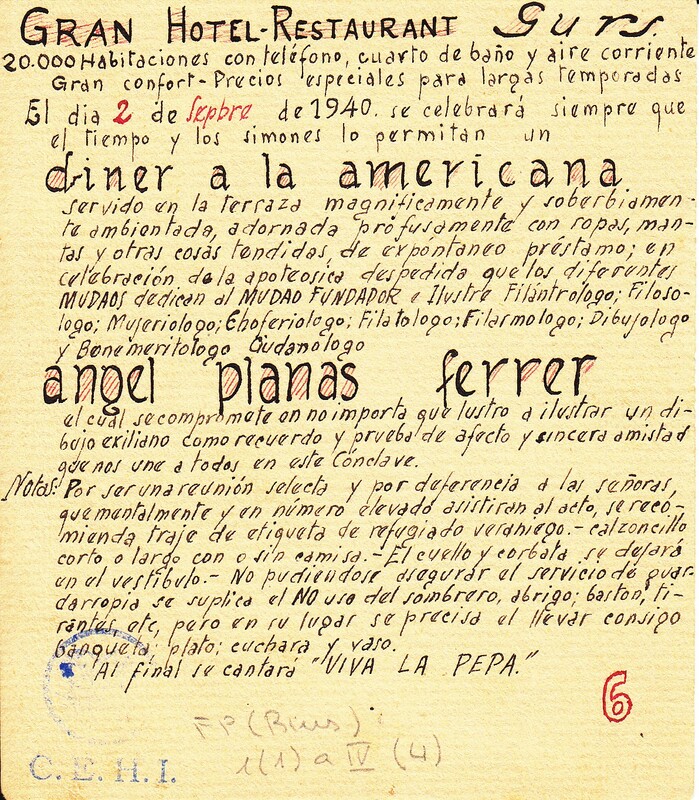 GRAN HOTEL-RESTAURANT Gurs.
20.000 Habitaciones con teléfono, cuarto de baño y aire corriente
Gran confort - Precios especiales para largas temporadas
El dia 2 de Sepbre de 1940. se celebrará siempre que
el tiempo y los simones lo permitan un
diner a la americana
servido en la terraza magnificamente y soberbiamen-
te ambientada, adornada profusamente con ropas, man-
tas y otras cosas tendidas, de expóntaneo préstamo; en
celebración de la apoteosica despedida que los diferentes
MUDAOS dedican al MUDAO FUNDADOR e Ilustre Filántrólogo; Filoso-
logo; Mujeriologo; Choferiologo; Filatologo; Filarmologo; Dibujologo
y Bonemeritologo Gudanólogo
angel planas ferrer
el cual se compromete en no importa que lustro a ilustrar un di-
bujo exiliano como recuerdo y prueba de afecto y sincera amistad
que nos une a todos en este Cónclave.
Notas: Por ser una reunión selecta y por deferencia a las señoras,
que mentalmente y en número elevado asistiran al acto, se reco-
mienda traje de etiqueta de refugiado veraniego.- calzoncillo
corto o largo con o sin camisa.- El cuello y corbata se dejará
en el vestíbulo.- No pudiendose asegurar el servicio de guar-
darropia se suplica el NO uso del sombrero, abrigo; baston, ti-
rantes etc, pero en su lugar se precisa el llevar consigo
banqueta; plato; cuchara y vaso.
Al final se cantará "VIVA LA PEPA."
6
FP (Bius)
1(1) a IV (4)
C. E. H. I.